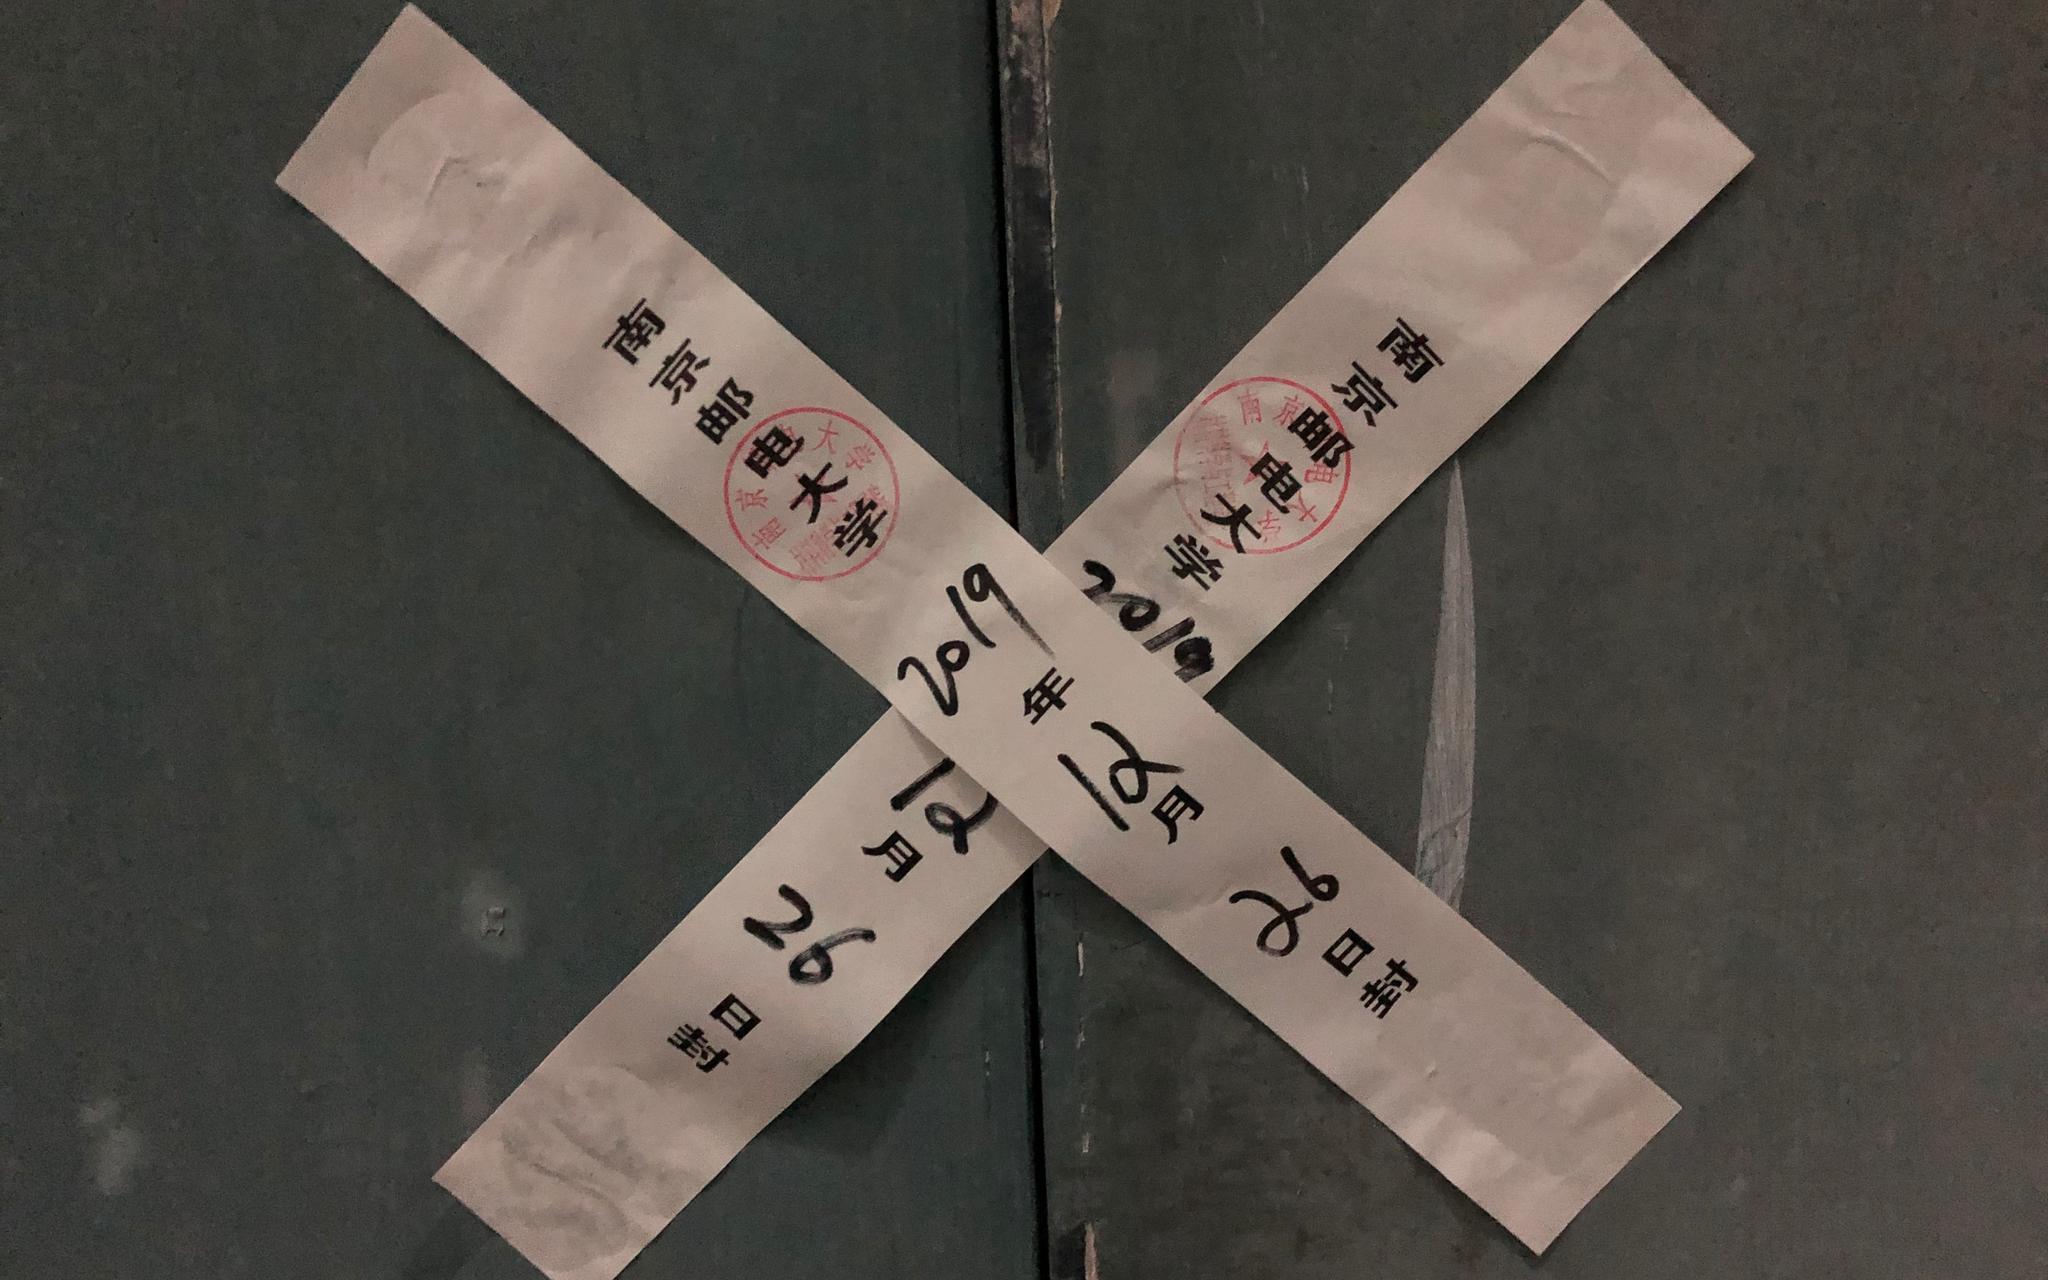 南京邮电大学
2019年12月26日封
南京邮电大学
2019
12月26日封
南京邮电大学